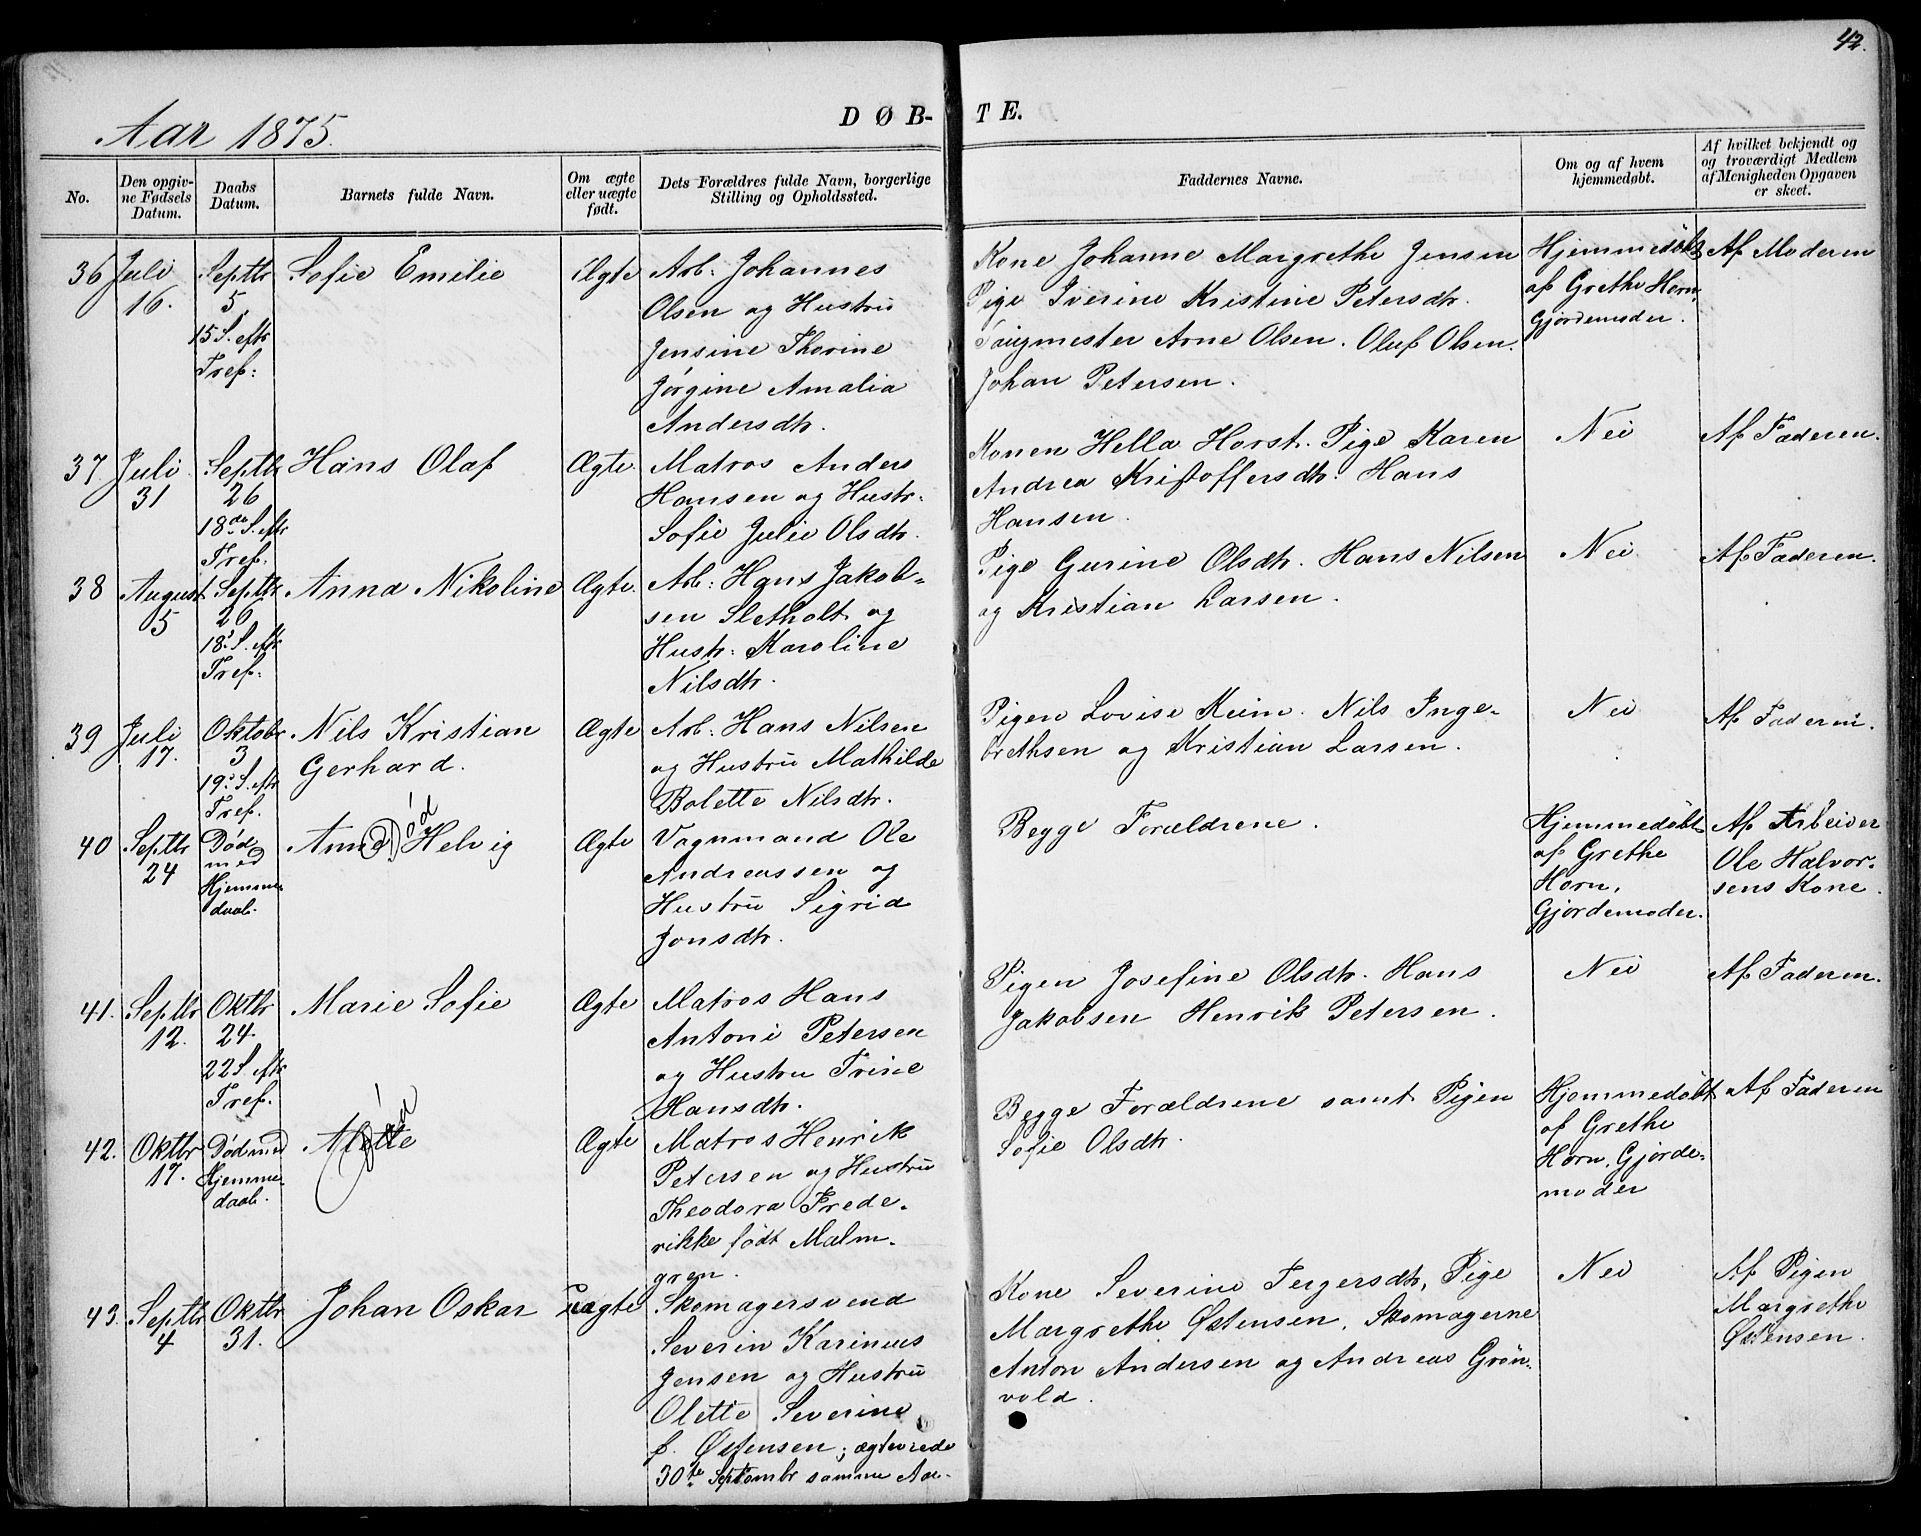 42.
Aar 1875.
DØB-
TE.
No.
Den opgiv-
ne Fødsels
Datum.
Daabs
Datum.
Barnets fulde Navn.
Om ægte
eller uægte
født.
Dets Forældres fulde Navn, borgerlige
Stilling og Opholdssted.
Faddernes Navne.
Om og af hvem
hjemmedøbt.
Af hvilket bekjendt og
og troværdigt Medlem
af Menigheden Opgaven
er skeet.
36
Juli
16.
Septbr
5
15 S. eftr
Tref:
Sofie Emilie
Ægte
Arb: Johannes
Olsen og Hustru
Jensine Thorine
Jørgine Amalia
Andersdtr.
Kone Johanne Margrethe Jensen
Pige Iverine Kristine Petersdtr.
Taugmester Arne Olsen. Oluf Olsen.
Johan Petersen.
Hjemmedøbt
af Grethe Horn,
Gjordemoder.
Af Moderen
37.
Juli
31
Septbr
26
18de S. eftr
Tref:
Hans Olaf
Ægte
Matros Anders
Hansen og Hustr.
Sofie Julie Olsdtr.
Konen Hella Horst. Pige Karen
Andrea Kristoffersdtr. Hans
Hansen.
Nei
Af Faderen.
38
August
5
Septbr
26
18. S. eftr
Tref:
Anna Nikoline
Ægte.
Arb: Hans Jakob-
sen Sletholt og
Hustr: Karoline
Nilsdtr.
Pige Gurine Olsdtr. Hans Nilsen
og Kristian Larsen.
Nei
Af Faderen.
39
Juli
17.
Oktobr
3
19. S. eftr
Tref.
Nils Kristian
Gerhard.
Ægte
Arb. Hans Nilsen
og Hustru Mathilde
Bolette Nilsdtr.
Pigen Lovise Keim. Nils Inge-
brethsen og Kristian Larsen.
Nei
Af Faderen.
40
Septbr
24
Død
med
Hjemme-
daab.
Anna Helvig
Død
Ægte
Vognmand Ole
Andreassen og
Hustru Sigrid
Jonsdtr.
Begge Forældrene.
Hjemmedøbt
af Grethe
Horn,
Gjordemoder.
Af Arbeider
Ole Halvor-
sens Kone.
41.
Septbr
12.
Oktbr
24.
22 S. eftr
Tref.
Marie Sofie
Ægte
Matros Hans
Antoni Petersen
og Hustru Trine
Hansdtr.
Pigen Josefine Olsdtr. Hans
Jakobsen Henrik Petersen.
Nei
Af Faderen.
42.
Oktbr
17.
Død med
Hjemme-
daab.
Alette
Død
Ægte
Matros Henrik
Petersen og Hustru
Theodora Frede-
rikke født Malm-
gren.
Begge Forældrene samt Pigen
Sofie Olsdtr.
Hjemmedøbt
af Grethe
Horn, Gjorde-
moder
Af Faderen
43.
Septbr
4
Oktbr
31.
Johan Oskar
Uægte
Skomagersvend
Severin Karinius
Jensen og Hustru
Olette Severine
f. Østensen; ægteviede
30te Septembr samme Aar.
Kone Severine Tergersdtr, Pige
Margrethe Østensen, Skomagerne
Anton Andersen og Andreas Grøn-
vold.
Nei
Af Pigen
Margrethe
Østensen.